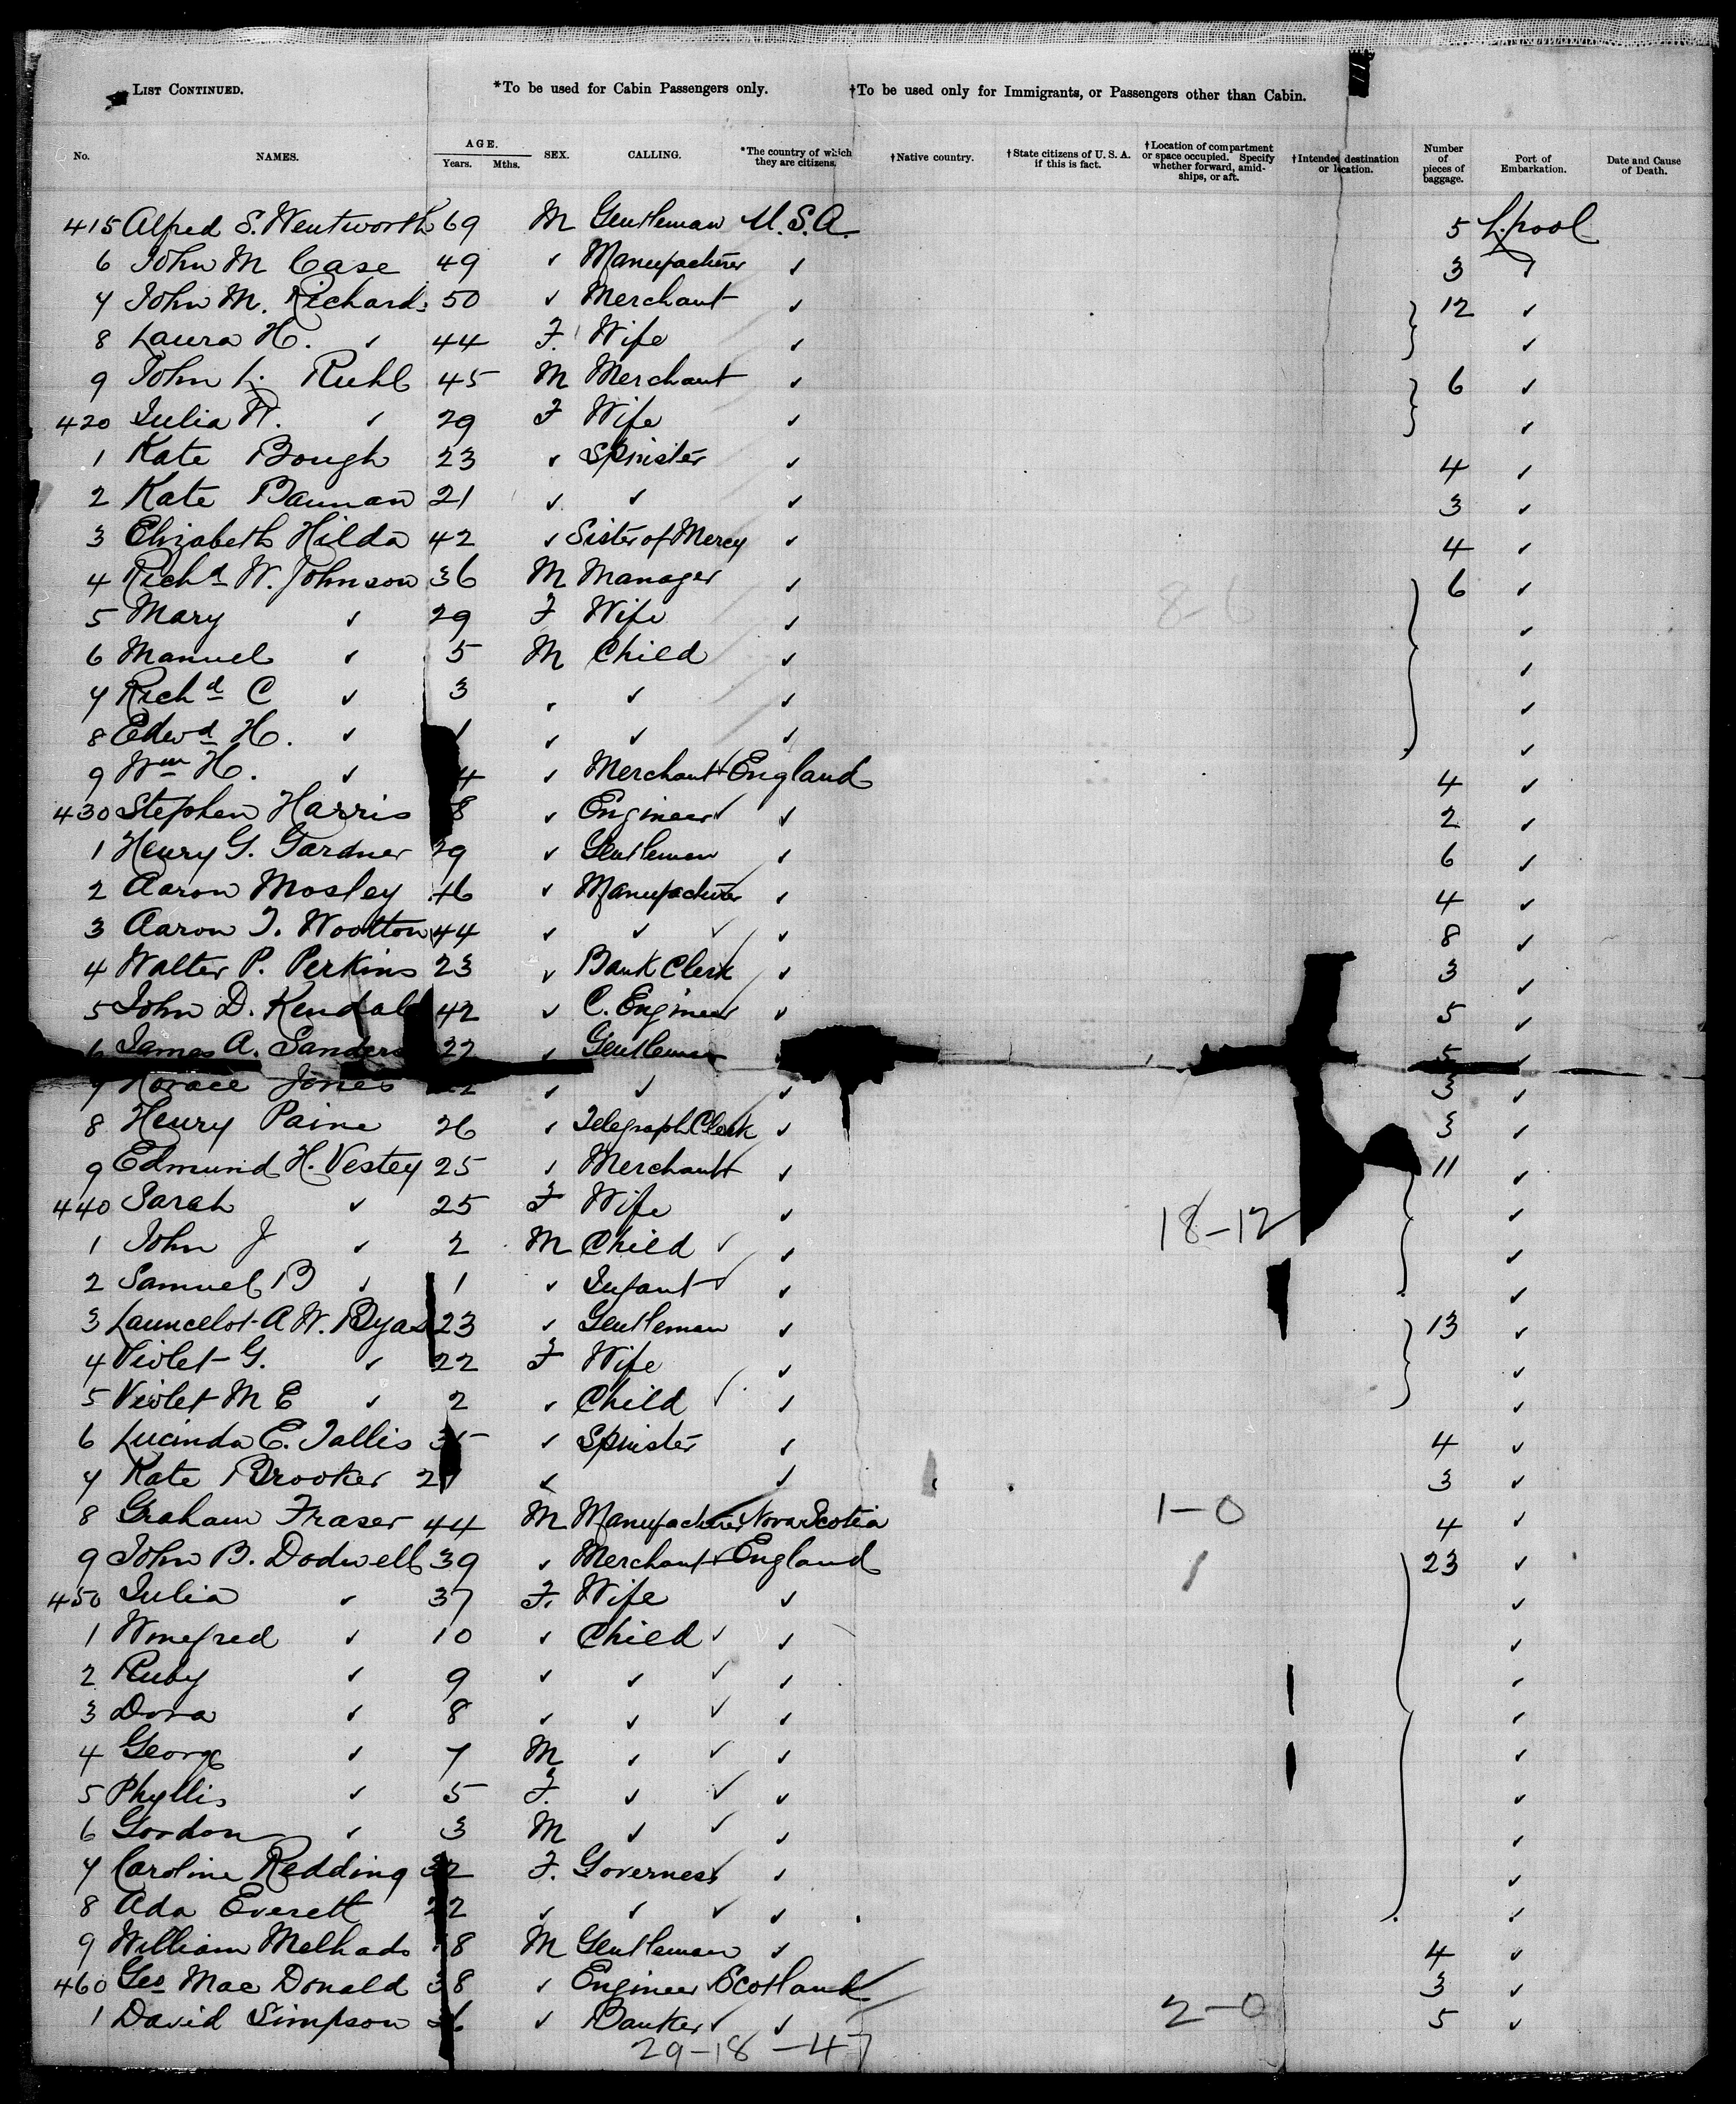 LIST CONTINUED. *To be used for Cabin Passengers only. †To be used only for Immigrants, or Passengers other than Cabin.
No. NAMES. AGE. Years. Mths. SEX. CALLING. *The country of which they are citizens. †Native country. †State citizens of U. S. A. if this is fact. †Location of compartment or space occupied. Specify whether forward, amidships, or aft. †Intended destination or location. Number of pieces of baggage. Port of Embarkation. Date and Cause of Death.
415 Alfred S. Wentworth 69 M Gentleman U.S.A. 5 L.pool
6 John M Case 49 ✓ Manufacturer ✓ 3 ✓
7 John M. Richards 50 ✓ Merchant ✓ 12 ✓
8 Laura H. ✓ 44 F. Wife ✓ ✓
9 John L. Ruhl 45 M Merchant ✓ 6 ✓
420 Julia W. ✓ 29 F Wife ✓ ✓
1 Kate Bough 23 ✓ Spinister ✓ 4 ✓
2 Kate Bauman 21 ✓ ✓ ✓ 3 ✓
3 Elizabeth Hilda 42 ✓ Sister of Mercy ✓ 4 ✓
4 Richd W. Johnson 36 M Manager ✓ 6 ✓
5 Mary ✓ 29 F Wife ✓ ✓
6 Manuel ✓ 5 M Child ✓ ✓
7 Richd C ✓ 3 ✓ ✓ ✓ ✓
8 Edwd H. ✓ 1 ✓ ✓ ✓ ✓
9 Wm H. ✓ 4 ✓ Merchant England 4 ✓
430 Stephen Harris 8 ✓ Engineer ✓ ✓ 2 ✓
1 Henry G. Gardner 29 ✓ Gentleman ✓ 6 ✓
2 Aaron Mosley 46 ✓ Manufacturer ✓ 4 ✓
3 Aaron T. Wootton 44 ✓ ✓ ✓ ✓ 8 ✓
4 Walter P. Perkins 23 ✓ Bank Clerk ✓ 3 ✓
5 John D. Kendall 42 ✓ C. Engineer ✓ 5 ✓
6 James A. Sanders 22 ✓ Gentleman 5 ✓
7 Horace Jones ✓ ✓ ✓ 3 ✓
8 Henry Paine 26 ✓ Telegraph Clerk ✓ 3 ✓
9 Edmund H. Vestey 25 ✓ Merchant ✓ 11 ✓
440 Sarah ✓ 25 F Wife ✓ 18-12 ✓
1 John J ✓ 2 M Child ✓ ✓ ✓
2 Samuel B ✓ 1 ✓ Infant ✓ ✓ ✓
3 Launcelot A W. Byas 23 ✓ Gentleman ✓ 13 ✓
4 Violet G. ✓ 22 F Wife ✓ ✓
5 Violet M E ✓ 2 ✓ Child ✓ ✓ ✓
6 Lucinda E. Tallis 35 ✓ Spinister ✓ 4 ✓
7 Kate Brooker 2 ✓ ✓ 3 ✓
8 Graham Fraser 44 M Manufacturer Nova Scotia 1-0 4 ✓
9 John B. Dodwell 39 ✓ Merchant England 1 23 ✓
450 Julia ✓ 37 F. Wife ✓ ✓
1 Winefred ✓ 10 ✓ Child ✓ ✓ ✓
2 Ruby ✓ 9 ✓ ✓ ✓ ✓ ✓
3 Dora ✓ 8 ✓ ✓ ✓ ✓ ✓
4 George ✓ 7 M ✓ ✓ ✓ ✓
5 Phyllis ✓ 5 F. ✓ ✓ ✓ ✓
6 Gordon ✓ 3 M ✓ ✓ ✓ ✓
7 Caroline Redding 32 F. Governess ✓ ✓
8 Ada Everett 22 ✓ ✓ ✓ ✓ ✓
9 William Melhado 8 M Gentleman ✓ 4 ✓
460 Geo Mac Donald 38 ✓ Engineer Scotland 3 ✓
1 David Simpson 6 ✓ Banker ✓ ✓ 2-0 5 ✓
29-18-47